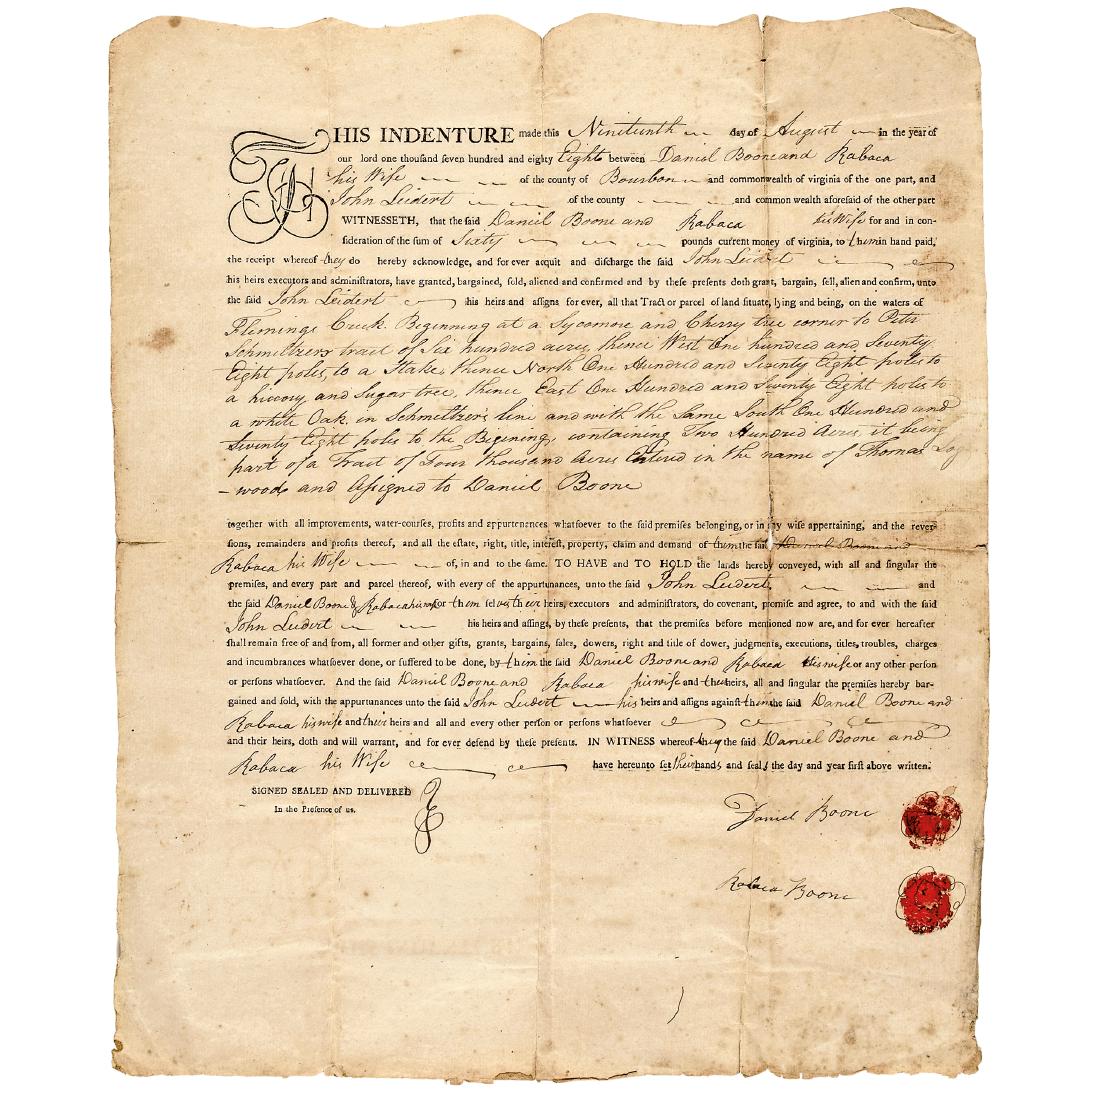 THIS INDENTURE made this Ninteenth day of August in the year of
our lord one thousand seven hundred and eighty Eight between Daniel Boone and Rabaca
his Wife of the county of Bourbon and commonwealth of virginia of the one part, and
John Leidert of the county and common wealth aforesaid of the other part
WITNESSETH, that the said Daniel Boone and Rabaca his Wife for and in con-
sideration of the sum of Sixty pounds current money of virginia, to them in hand paid,
the receipt whereof they do hereby acknowledge, and for ever acquit and discharge the said John Leidert
his heirs executors and administrators, have granted, bargained, sold, aliened and confirmed and by these presents doth grant, bargain, sell, alien and confirm, unto
the said John Leidert his heirs and assigns for ever, all that Tract or parcel of land situate, lying and being, on the waters of
Flemings Creek. Beginning at a Sycomore and Cherry tree corner to Peter
Schmeltzers tract of Six hundred acres, thence West One hundred and Seventy
Eight poles, to a Stake, thence North One Hundred and Seventy Eight poles to
a hiccory and Sugar tree, thence East One Hundred and Seventy Eight poles to
a white Oak in Schmeltzer's line and with the Same South One Hundred and
Seventy Eight poles to the Begining, containing Two Hundred Acres, it being
part of a Tract of Four thousand Acres Entered in the name of Thomas Log
-woods and Assigned to Daniel Boone
together with all improvements, water-courses, profits and appurtenences whatsoever to the said premises belonging, or in any wise appertaining, and the rever-
sions, remainders and profits thereof, and all the estate, right, title, interest, property, claim and demand of them the said Daniel Boone and
Rabaca his Wife of, in and to the same. TO HAVE and TO HOLD the lands hereby conveyed, with all and singular the
premises, and every part and parcel thereof, with every of the appurtunances, unto the said John Leidert and
the said Daniel Boone & Rabaca his wife for them selves their heirs, executors and administrators, do covenant, promise and agree, to and with the said
John Leidert his heirs and assings, by these presents, that the premises before mentioned now are, and for ever hereafter
shall remain free of and from, all former and other gifts, grants, bargains, sales, dowers, right and title of dower, judgments, executions, titles, troubles, charges
and incumbrances whatsoever done, or suffered to be done, by them the said Daniel Boone and Rabaca his wife or any other person
or persons whatsoever. And the said Daniel Boone and Rabaca his wife and their heirs, all and singular the premises hereby bar-
gained and sold, with the appurtunances unto the said John Leidert his heirs and assigns against them the said Daniel Boone and
Rabaca his wife and their heirs and all and every other person or persons whatsoever
and their heirs, doth and will warrant, and for ever defend by these presents. IN WITNESS whereof they the said Daniel Boone and
Rabaca his Wife have hereunto set their hands and seals the day and year first above written.
SIGNED SEALED AND DELIVERED
In the Presence of us.
Daniel Boone
Rabaca Boone